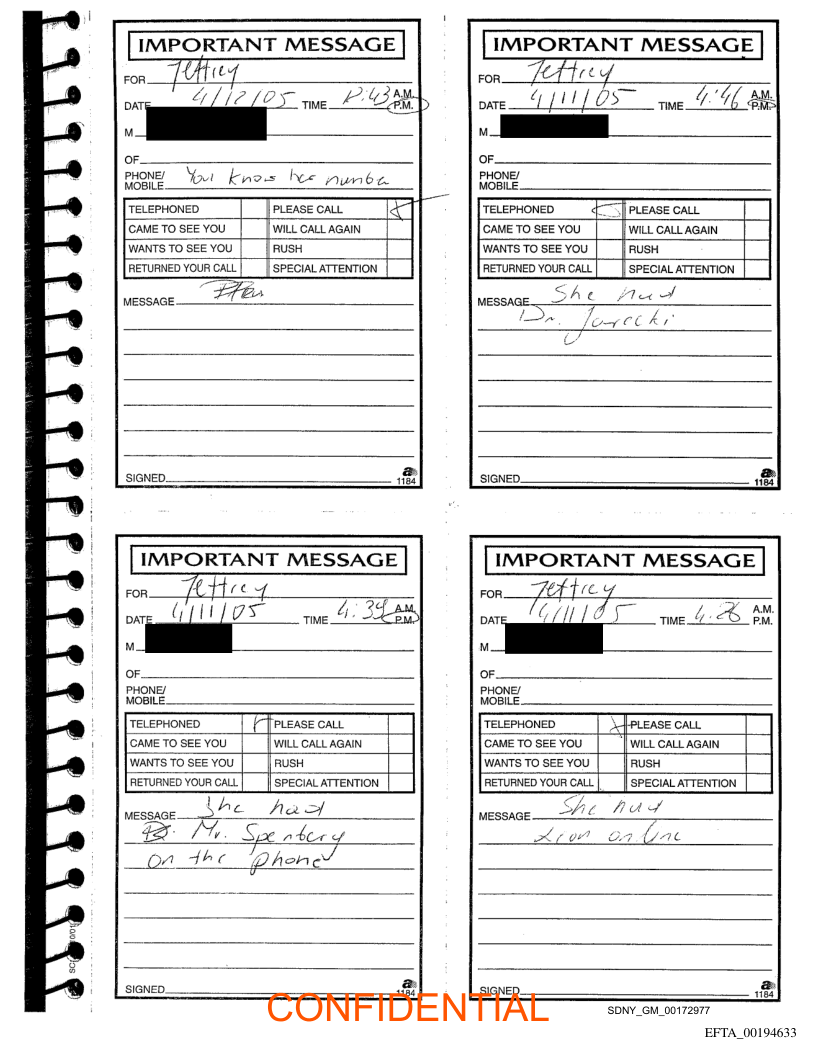 IMPORTANT MESSAGE
FOR Jeffrey
DATE 4/12/05 TIME 12:43 A.M. P.M.
M
OF
PHONE/
MOBILE You know her number
TELEPHONED PLEASE CALL
CAME TO SEE YOU WILL CALL AGAIN
WANTS TO SEE YOU RUSH
RETURNED YOUR CALL SPECIAL ATTENTION
MESSAGE
SIGNED
a
1184
IMPORTANT MESSAGE
FOR Jeffrey
DATE 4/11/05 TIME 4:46 A.M. P.M.
M
OF
PHONE/
MOBILE
TELEPHONED PLEASE CALL
CAME TO SEE YOU WILL CALL AGAIN
WANTS TO SEE YOU RUSH
RETURNED YOUR CALL SPECIAL ATTENTION
MESSAGE She had
Dr. Jarecki
SIGNED
a
1184
IMPORTANT MESSAGE
FOR Jeffrey
DATE 4/11/05 TIME 4:39 A.M. P.M.
M
OF
PHONE/
MOBILE
TELEPHONED PLEASE CALL
CAME TO SEE YOU WILL CALL AGAIN
WANTS TO SEE YOU RUSH
RETURNED YOUR CALL SPECIAL ATTENTION
MESSAGE She had
Mr. Spenbery
on the phone
SIGNED
a
1184
IMPORTANT MESSAGE
FOR Jeffrey
DATE 4/11/05 TIME 4:26 A.M. P.M.
M
OF
PHONE/
MOBILE
TELEPHONED PLEASE CALL
CAME TO SEE YOU WILL CALL AGAIN
WANTS TO SEE YOU RUSH
RETURNED YOUR CALL SPECIAL ATTENTION
MESSAGE She had
on line
SIGNED
a
1184
CONFIDENTIAL
SDNY_GM_00172977
EFTA_00194633